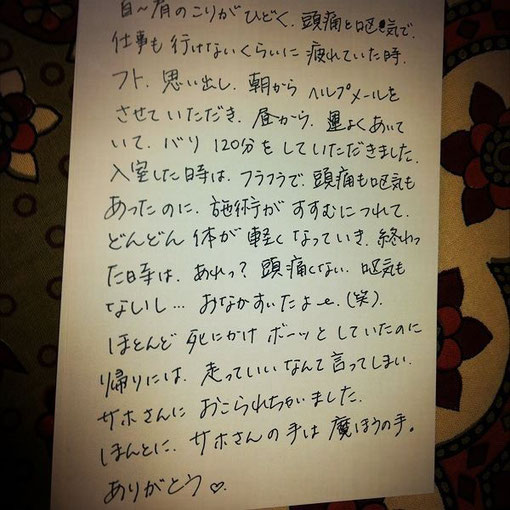 肩のこりがひどく、頭痛と吐気で、
仕事も行けないくらいに疲れていた時、
フト、思い出し、朝からヘルプメールを
させていただき、昼から、運よくあいて
いて、バリ120分をしていただきました。
入室した時は、フラフラで、頭痛も吐気も
あったのに、施術がすすむにつれて、
どんどん体が軽くなっていき、終わっ
た時は、あれっ?頭痛くない、吐気も
ないし…おなかすいたよー。(笑)
ほとんど死にかけボーッとしていたのに
帰りには、走っていいなんて言ってしまい、
サホさんにおこられちゃいました。
ほんとに、サホさんの手は魔ほうの手。
ありがとう♡